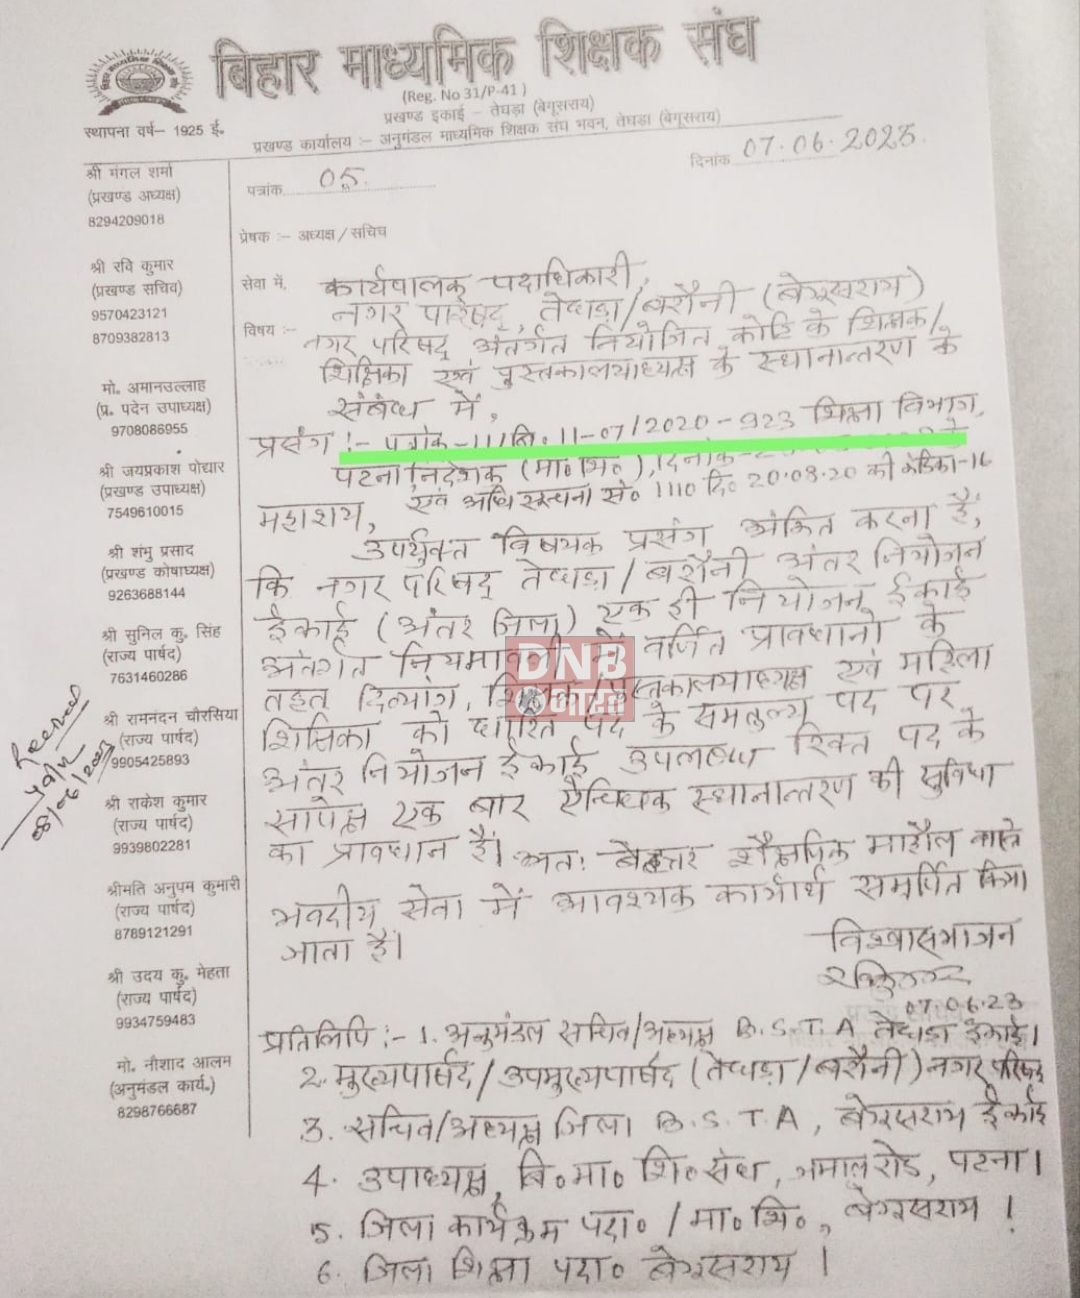 बिहार माध्यमिक शिक्षक संघ
(Reg. No 31/P-41 )
प्रखण्ड इकाई - तेघड़ा (बेगूसराय)
स्थापना वर्ष- 1925 ई.
प्रखण्ड कार्यालय :- अनुमंडल माध्यमिक शिक्षक संघ भवन, तेघड़ा (बेगूसराय)
पत्रांक 05.
दिनांक 07.06.2023.
श्री मंगल शर्मा
(प्रखण्ड अध्यक्ष)
8294209018
श्री रवि कुमार
(प्रखण्ड सचिव)
9570423121
8709382813
मो. अमानउल्लाह
(प्र. पदेन उपाध्यक्ष)
9708086955
श्री जयप्रकाश पोद्दार
(प्रखण्ड उपाध्यक्ष)
7549610015
श्री शंभु प्रसाद
(प्रखण्ड कोषाध्यक्ष)
9263688144
श्री सुनिल कु. सिंह
(राज्य पार्षद)
7631460286
श्री रामनंदन चौरसिया
(राज्य पार्षद)
9905425893
श्री राकेश कुमार
(राज्य पार्षद)
9939802281
श्रीमति अनुपम कुमारी
(राज्य पार्षद)
8789121291
श्री उदय कु. मेहता
(राज्य पार्षद)
9934759483
मो. नौशाद आलम
(अनुमंडल कार्य.)
8298766687
प्रेषक :- अध्यक्ष / सचिव
सेवा में, कार्यपालक पदाधिकारी,
नगर परिषद्, तेघड़ा/बरौनी (बेगूसराय)
विषय :- नगर परिषद् अंतर्गत नियोजित कोटि के शिक्षक/
शिक्षिका एवं पुस्तकालयाध्यक्ष के स्थानान्तरण के
संबंध में,
प्रसंग :- पत्रांक-11/वि० 11-07/2020-923 शिक्षा विभाग,
पटना निदेशक (मा० शि०), दिनांक-
एवं अधिसूचना सं० 1110 दि० 20.08.20 की कंडिका-16
महाशय,
उपर्युक्त विषयक प्रसंग अंकित करना है,
कि नगर परिषद् तेघड़ा/बरौनी अंतर नियोजन
ईकाई (अंतर जिला) एक ही नियोजन ईकाई
अंतर्गत नियमावली में वर्णित प्रावधानों के
तहत दिव्यांग, शिक्षक/पुस्तकालयाध्यक्ष एवं महिला
शिक्षिका को धारित पद के समतुल्य पद पर
अंतर नियोजन ईकाई उपलब्ध रिक्त पद के
सापेक्ष एक बार ऐच्छिक स्थानान्तरण की सुविधा
का प्रावधान है। अतः बेहत्तर शैक्षणिक माहौल वास्ते
भवदीय सेवा में आवश्यक कार्यार्थ समर्पित किया
जाता है।
विश्वासभाजन
07.06.23
प्रतिलिपि :- 1. अनुमंडल सचिव/अध्यक्ष B.S.T.A तेघड़ा ईकाई।
2. मुख्यपार्षद/उपमुख्यपार्षद (तेघड़ा/बरौनी) नगर परिषद
3. सचिव/अध्यक्ष जिला B.S.T.A, बेगूसराय ईकाई
4. उपाध्यक्ष, बि० मा० शि० संघ, जमाल रोड, पटना।
5. जिला कार्यक्रम पदा० / मा० शि०, बेगूसराय।
6. जिला शिक्षा पदा० बेगूसराय।
DNB
भारत